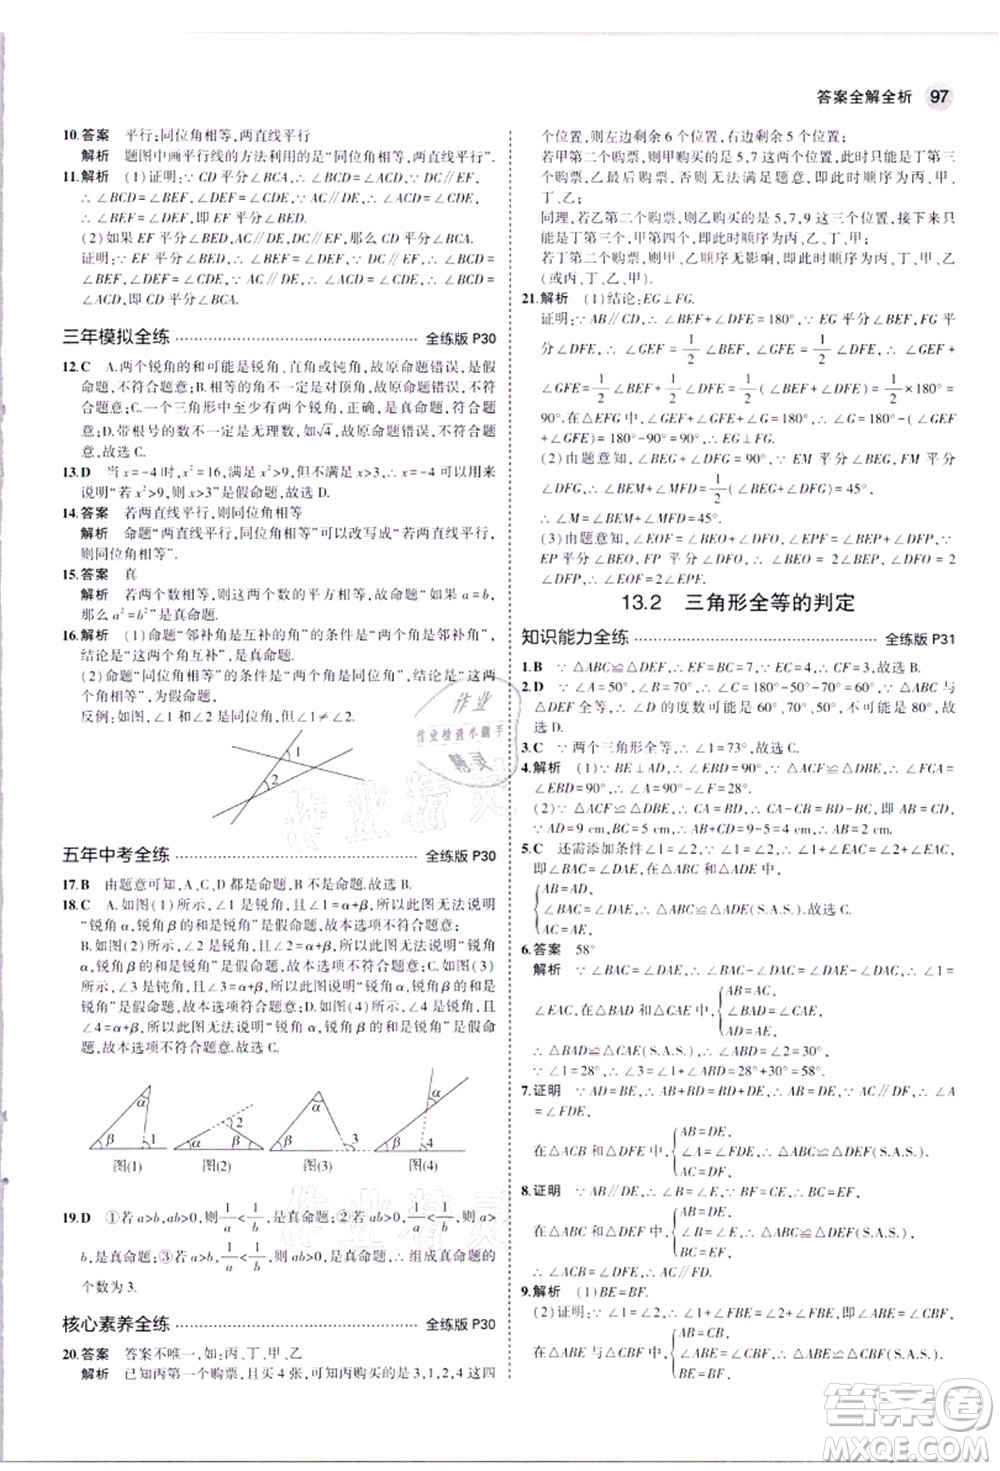 答案全解全析 97
10.答案 平行;同位角相等,两直线平行
解析 题图中画平行线的方法利用的是“同位角相等,两直线平行”.
11.解析 (1)证明:∵CD平分∠BCA,∴∠BCD=∠ACD,∵DC∥EF,
∴∠BCD=∠BEF,∠DEF=∠CDE,∵AC∥DE,∴∠ACD=∠CDE,
∴∠BEF=∠DEF,即EF平分∠BED.
(2)如果EF平分∠BED,AC∥DE,DC∥EF,那么CD平分∠BCA.
证明:∵EF平分∠BED,∴∠BEF=∠DEF,∵DC∥EF,∴∠BEF=
∠BCD,∠DEF=∠CDE,∵AC∥DE,∴∠ACD=∠CDE,∴∠BCD=
∠ACD,即CD平分∠BCA.
三年模拟全练 全练版P30
12.C A.两个锐角的和可能是锐角、直角或钝角,故原命题错误,是假
命题,不符合题意;B.相等的角不一定是对顶角,故原命题错误,是假
命题,不符合题意;C.一个三角形中至少有两个锐角,正确,是真命题,符合题
意;D.带根号的数不一定是无理数,如√4,故原命题错误,不符合
题意.故选C.
13.D 当x=-4时,x²=16,满足x²>9,但不满足x>3,∴x=-4可以用来
说明“若x²>9,则x>3”是假命题,故选D.
14.答案 若两直线平行,则同位角相等
解析 命题“两直线平行,同位角相等”可以改写成“若两直线平行,
则同位角相等”.
15.答案 真
解析 若两个数相等,则这两个数的平方相等,故命题“如果a=b,那
么a²=b²”是真命题.
16.解析 (1)命题“邻补角是互补的角”的条件是“两个角是邻补角”,
结论是“这两个角互补”,为真命题.
(2)命题“同位角相等”的条件是“两个角是同位角”,结论是“这两
个角相等”,为假命题.
反例:如图,∠1与∠2是同位角,但∠1≠∠2.
1
2
五年中考全练 全练版P30
17.B 由题意可知,A、C、D都是命题,B不是命题.故选B.
18.C A.如图(1)所示,∠1是锐角,且∠1=α+β,所以此图说明“锐角
α,锐角β的和是锐角”是真命题,故本选项不符合题意;
B.如图(2)所示,∠2是锐角,且∠2=α+β,所以此图说明“锐角
α,锐角β的和是锐角”是真命题,故本选项不符合题意;C.如图(3)
所示,∠3是钝角,且∠3=α+β,所以此图说明“锐角α,锐角β的和是
锐角”是假命题,故本选项符合题意;D.如图(4)所示,∠4是锐角,且
∠4=α+β,所以此图无法说明“锐角α,锐角β的和是锐角”是假命
题,故本选项不符合题意.故选C.
α β 1 图(1)
α β 2 图(2)
α β 3 图(3)
α β 4 图(4)
19.D ①若a>b,ab>0,则1/a<1/b,是真命题;②若ab>0,1/a<1/b,则a>
b,是真命题;③若a>b,1/a<1/b,则ab>0,是真命题,∴组成真命题的
个数为3.
核心素养全练 全练版P30
20.答案 答案不唯一,如:丙、丁、甲、乙
解析 已知丙第一个购票,且买4张,可知丙购买的是3,1,2,4这四
个位置,则左边剩余6个位置,右边剩余5个位置;
若甲第二个购票,则甲购买的是5,7这两个位置,接下来只能是
丁,乙最后购票,否则无法满足题意,此时顺序为丙、甲、
丁、乙;
同理,若乙第二个购票,则乙购买的是5,7,9这三个位置,接下来只
能是丁,甲第四个,此时顺序为丙、乙、丁、甲;
若丁第二个购票,则甲、乙无影响,此时顺序为丙、丁、甲、乙
(或丙、丁、乙、甲).
21.解析 (1)结论:EG⊥FG.
证明:∵AB∥CD,∴∠BEF+∠DFE=180°,∵EG平分∠BEF,FG
平分∠DFE,∴∠GEF=1/2∠BEF,∠GFE=1/2∠DFE,∴∠GEF+
∠GFE=1/2∠BEF+1/2∠DFE=1/2(∠BEF+∠DFE)=1/2×180°=
90°.在△EFG中,∠GEF+∠GFE+∠G=180°,∴∠G=180°-(∠GEF+
∠GFE)=90°,∴EG⊥FG.
(2)由题意知∠BEG+∠DFG=90°,∵EM平分∠BEG,FM平分
∠DFG,∴∠BEM+∠MFD=1/2(∠BEG+∠DFG)=45°,
∴∠M=∠BEM+∠MFD=45°.
(3)由题意知,∠EOF=∠BEO+∠DFO,∠EPF=∠BEP+∠DFP,∵
EP平分∠BEO,FP平分∠DFO,∴∠BEO=2∠BEP,∠DFO=2
∠DFP,∴∠EOF=2∠EPF.
13.2 三角形全等的判定
知识能力全练 全练版P31
1.B ∵△ABC≌△DEF,∴EF=BC=7,∵EC=4,∴CF=3.故选B.
2.D ∵∠A=50°,∠B=70°,∴∠C=60°,∵△ABC与
△DEF全等,∴∠D的度数可能是50°或70°或60°.故
选D.
3.C ∵两个三角形全等,∴∠1=73°,故选C.
4.解析 (1)∵BE⊥AD,∴∠EBD=90°,∵△ACF≌△DBE,
∴∠ACF=∠EBD=90°,∴∠A=90°-∠F=28°.
(2)∵△ACF≌△DBE,∴CA=BD,∴CA-CB=BD-BC,即AB=CD,
∵AD=9 cm,BC=5 cm,∴AB+CD=9-5=4 cm,∴AB=2 cm.
5.C 还需添加条件∠1=∠2.∵∠1=∠2,∴∠1+∠CAD=∠2+∠CAD,
即∠BAC=∠DAE,在△ABC和△ADE中,
AB=AD,
∠BAC=∠DAE,∴△ABC≌△ADE(S.A.S.).故选C.
AC=AE,
6.答案 58°
解析 ∵∠BAC=∠DAE,∴∠BAC-∠DAC=∠DAE-∠DAC,∴∠1=
∠EAC,在△BAD和△CAE中,
AB=AC,
∠BAD=∠CAE,
AD=AE,
∴△BAD≌△CAE(S.A.S.),∴∠ABD=∠2=30°,
∵∠1=28°,∴∠3=∠1+∠ABD=28°+30°=58°.
7.证明 ∵AD=BE,∴AB+BD=BD+DE,即AB=DE,∵AC∥DF,∴∠A
=∠FDE,
在△ACB和△DFE中,
AB=DE,
∠A=∠FDE,∴△ACB≌△DFE(S.A.S.).
AC=DF,
8.证明 ∵AB∥DE,∴∠B=∠DEF,
在△ABC和△DEF中,
AB=DE,
∠B=∠DEF,∴△ABC≌△DEF(S.A.S.),
BC=EF,
∴∠ACB=∠DFE,∴AC∥DF.
9.解析 (1)BE=BF.
(2)证明:∵∠1=∠2,∴∠1+∠FBE=∠2+∠FBE,即∠ABE=∠CBF,
在△ABE与△CBF中,
AB=CB,
∠ABE=∠CBF,∴△ABE≌△CBF
作业
作业检查小助手
精灵
作业精灵
答案圈
MXQE.COM